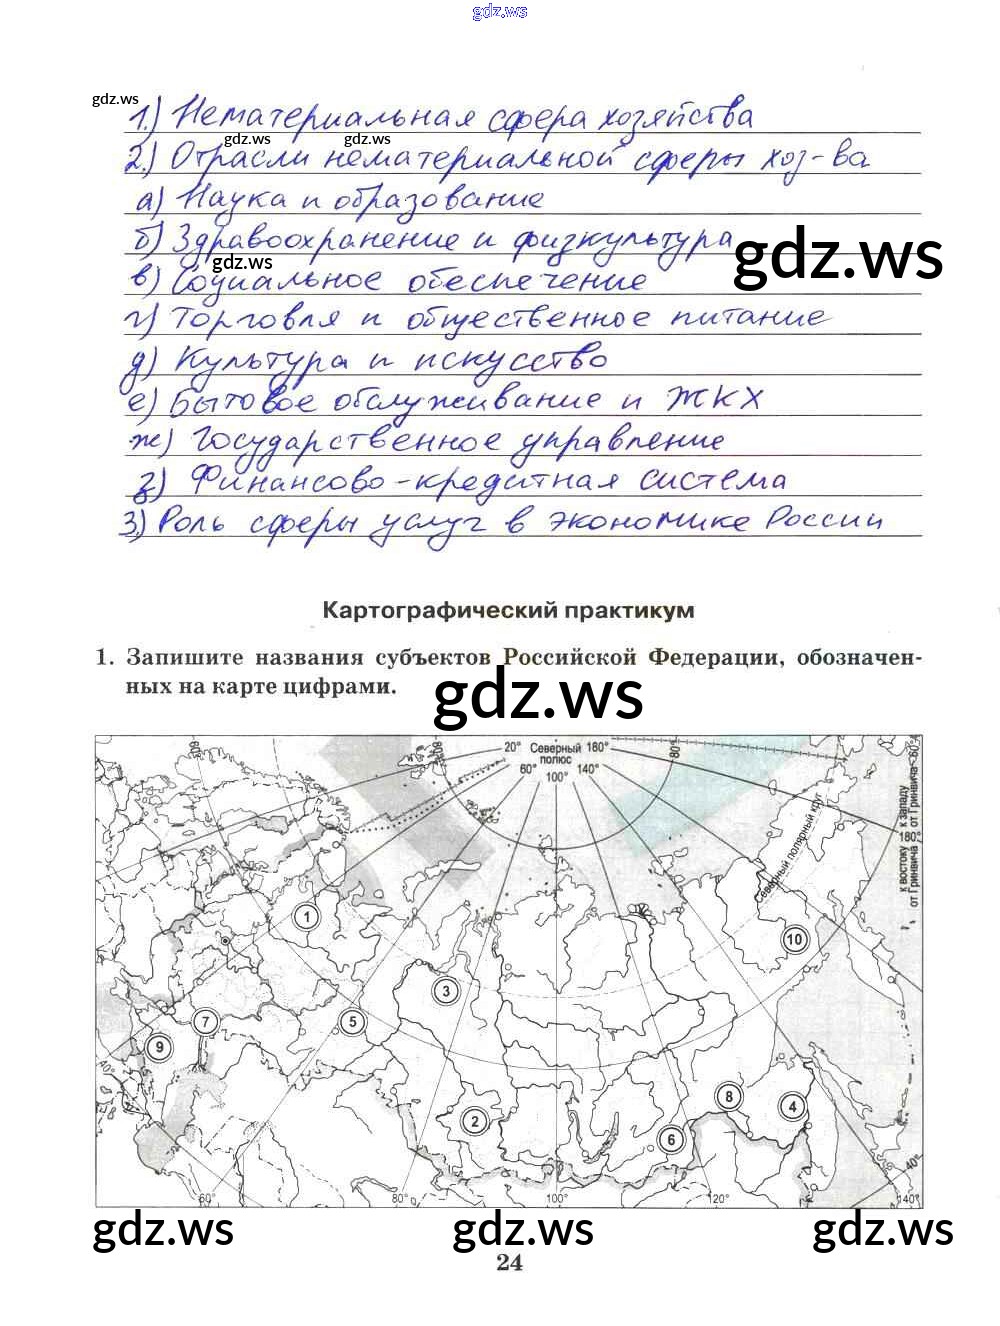 gdz.ws
gdz.ws
1.) Нематериальная сфера хозяйства
gdz.ws gdz.ws
2.) Отрасли нематериальной сферы хоз-ва
а) Наука и образование
б) Здравоохранение и физкультура
gdz.ws gdz.ws
в) Социальное обеспечение
г) Торговля и общественное питание
д) Культура и искусство
е) Бытовое обслуживание и ЖКХ
ж) Государственное управление
з) Финансово-кредитная система
3.) Роль сферы услуг в экономике России
Картографический практикум
1. Запишите названия субъектов Российской Федерации, обозначен-
ных на карте цифрами.
gdz.ws
80° 80° 20° Северный полюс 180° 80° 60°
60° 100° 140°
Северный полярный круг
180°
к востоку от Гринвича
к западу от Гринвича
1
10
3
7
5
9
40°
8
4
2
6
40°
60° 80° 100° 120° 140°
gdz.ws gdz.ws gdz.ws
24